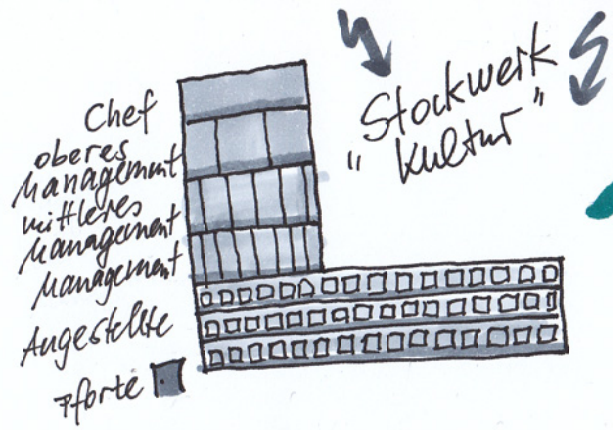 Chef
oberes
Management
mittleres
Management
Management
Angestellte
Pforte
Stockwerk
"Kultur"